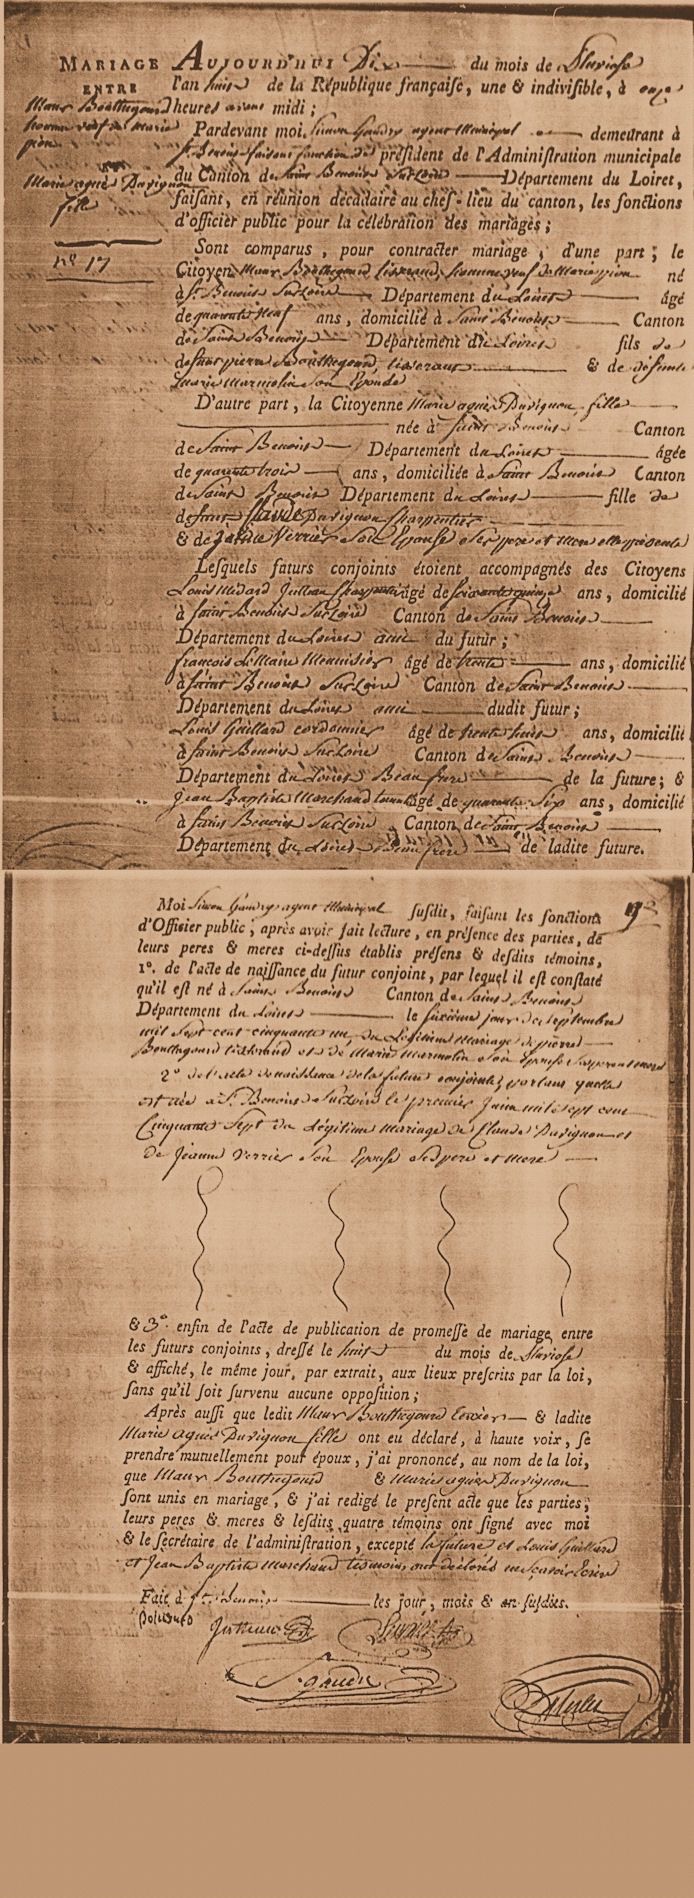 MARIAGE
ENTRE
Maur Bouthegourd
homme veuf de Marie
pion
Marie agnès Durignon
fille
nº 17
AUJOURD'HUI Dix du mois de Pluviose
l'an huit de la République françaiſe, une & indiviſible, à onze
heures avant midi;
Pardevant moi Simon Gaudry agent Municipal demeurant à
St Benoist faisant fonction de préſident de l'Adminiſtration municipale
du Canton de Saint Benoist Sur Loire Département du Loiret,
faiſant, en réunion décadaire au chef-lieu du canton, les fonctions
d'officier public pour la célébration des mariages;
Sont comparus, pour contracter mariage, d'une part; le
Citoyen Maur Bouthegourd tisserand, homme veuf de Marie pion né
à St Benoist Sur Loire Département du Loiret âgé
de quarante neuf ans, domicilié à Saint Benoist Canton
de Saint Benoist Département du Loiret fils de
defunt pierre Bouthegourd, tisserant & de defunte
Marie Marmolin Son Epouse
D'autre part, la Citoyenne Marie agnès Durignon fille
née à Saint Benoist Canton
de Saint Benoist Département du Loiret âgée
de quarante trois ans, domiciliée à Saint Benoist Canton
de Saint Benoist Département du Loiret fille de
defunt Claude Durignon Charpentier
& de Jeanne Verrier Son Epouse Ses pere et Mere
Leſquels futurs conjoints étoient accompagnés des Citoyens
Louis Médard Jutteau Charpentier âgé de soixante quinze ans, domicilié
à Saint Benoist Sur Loire Canton de Saint Benoist
Département du Loiret ami du futur;
francois Le Maire Menuisier âgé de trente ans, domicilié
à Saint Benoist Sur Loire Canton de Saint Benoist
Département du Loiret ami dudit futur;
Louis Guillard cordonnier âgé de trente huit ans, domicilié
à Saint Benoist Sur Loire Canton de Saint Benoist
Département du Loiret Beau frere de la future; &
Jean Baptiste Marchand âgé de quarante Six ans, domicilié
à Saint Benoist Sur Loire Canton de Saint Benoist
Département du Loiret Beau frere de ladite future.
Moi Simon Gaudry agent Municipal ſuſdit, faiſant les fonctions
d'Officier public, après avoir fait lecture, en préſence des parties, de
leurs peres & meres ci-deſſus établis préſens & deſdits témoins,
1°. de l'acte de naiſſance du futur conjoint, par lequel il eſt conſtaté
qu'il eſt né à Saint Benoist Canton de Saint Benoist
Département du Loiret le sixième jour de Septembre
mil Sept cent cinquante un du Légitime Mariage de pierre
Bouthegourd tisserand et de Marie Marmolin son Epouse Ses pere et mere
2° de l'acte de naissance de la future conjointe, par laquelle
est née a St Benoist Sur Loire le premier Juin mil sept cent
Cinquante Sept du Légitime Mariage de Claude Durignon et
de Jeanne Verrier Son Epouse Ses pere et Mere
& 3°. enfin de l'acte de publication de promeſſe de mariage entre
les futurs conjoints, dreſſé le huit du mois de Pluviose
& affiché, le même jour, par extrait, aux lieux preſcrits par la loi,
ſans qu'il ſoit ſurvenu aucune oppoſition;
Après auſſi que ledit Maur Bouthegourd & ladite
Marie agnès Durignon fille ont eu déclaré, à haute voix, ſe
prendre mutuellement pour époux, j'ai prononcé, au nom de la loi,
que Maur Bouthegourd & Marie agnès Durignon
ſont unis en mariage, & j'ai redigé le preſent acte que les parties,
leurs peres & meres & leſdits quatre témoins ont ſigné avec moi
& le ſecrétaire de l'adminiſtration, excepté la future et Louis Guillard
et Jean Baptiste Marchand temoins, ont déclarés ne scavoir Ecrire
Fait à St Benoist les jour, mois & an ſuſdits.
Jutteau
S. gaudry